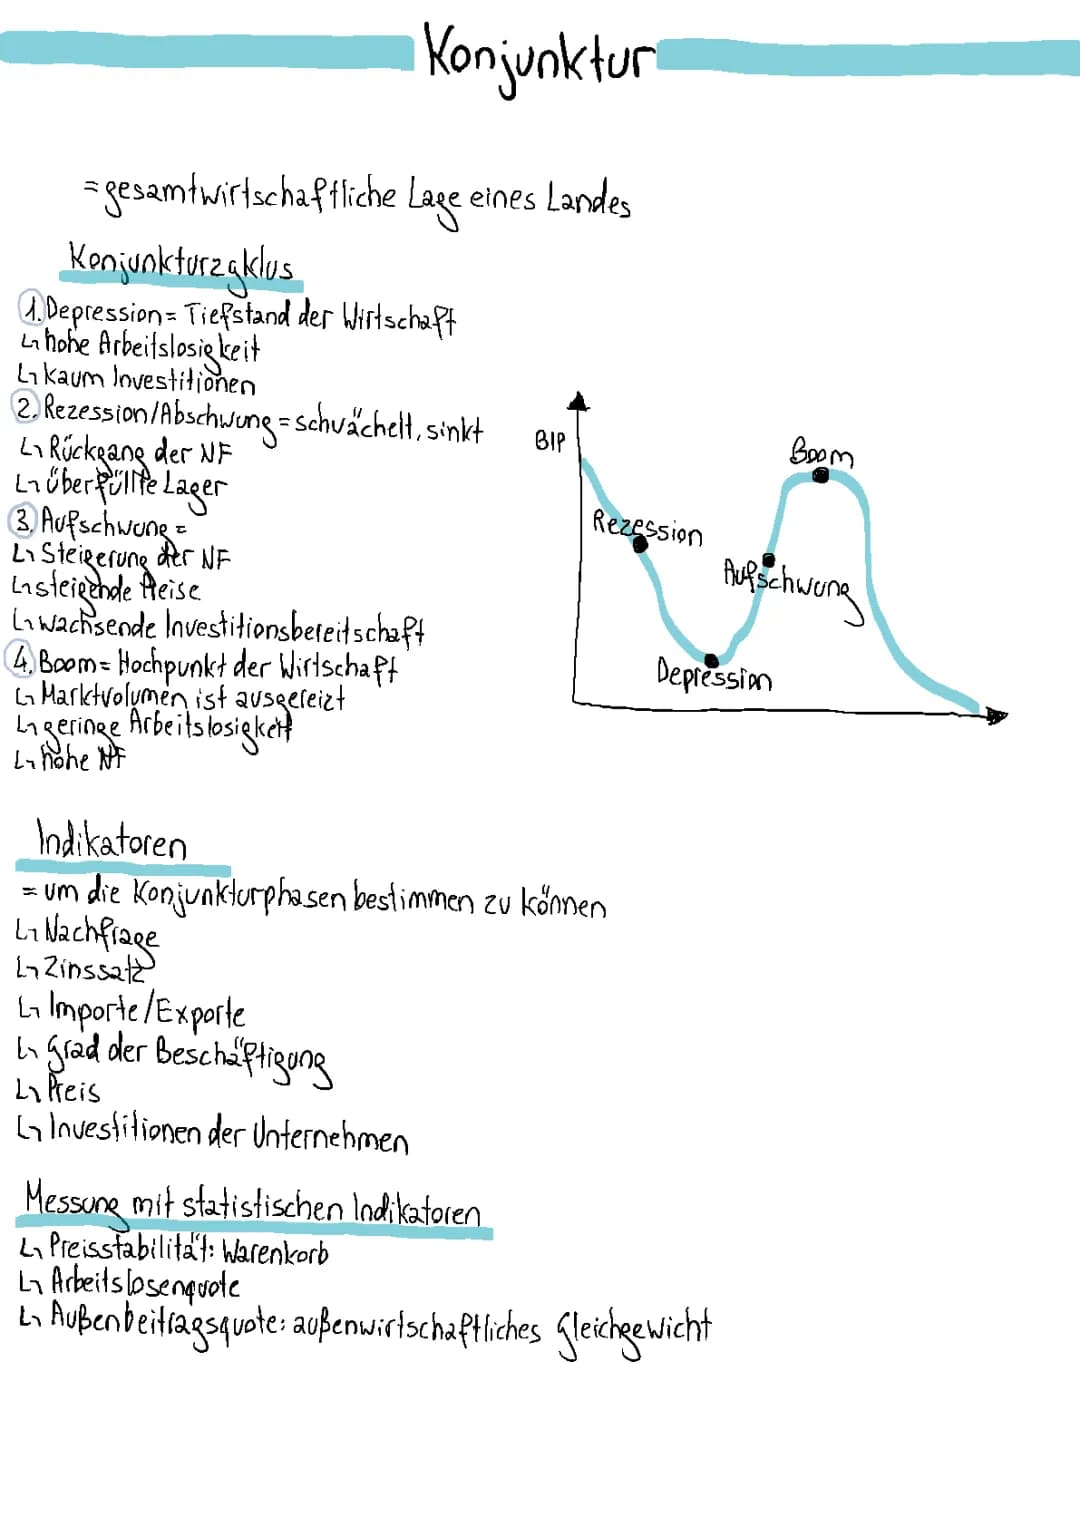 Konjunktur
=gesamtwirtschaftliche Lage eines Landes
Konjunkturzyklus
1. Depression= Tiefstand der Wirtschaft
↳ hohe Arbeitslosigkeit
↳ kaum Investitionen
2. Rezession/Abschwung = schwächelt, sinkt
↳ Rückgang der NF
↳ überfüllte Lager
3. Aufschwung =
↳ Steigerung der NF
↳ steigende Preise
↳ wachsende Investitionsbereitschaft
4. Boom= Hochpunkt der Wirtschaft
↳ Marktvolumen ist ausgereizt
↳ geringe Arbeitslosigkeit
↳ hohe NF
BIP
Boom
Rezession
Aufschwung
Depression
Indikatoren
= um die Konjunkturphasen bestimmen zu können
↳ Nachfrage
↳ Zinssatz
↳ Importe/Exporte
↳ Grad der Beschäftigung
↳ Preis
↳ Investitionen der Unternehmen
Messung mit statistischen Indikatoren
↳ Preisstabilität: Warenkorb
↳ Arbeitslosenquote
↳ Außenbeitragsquote: außenwirtschaftliches Gleichgewicht